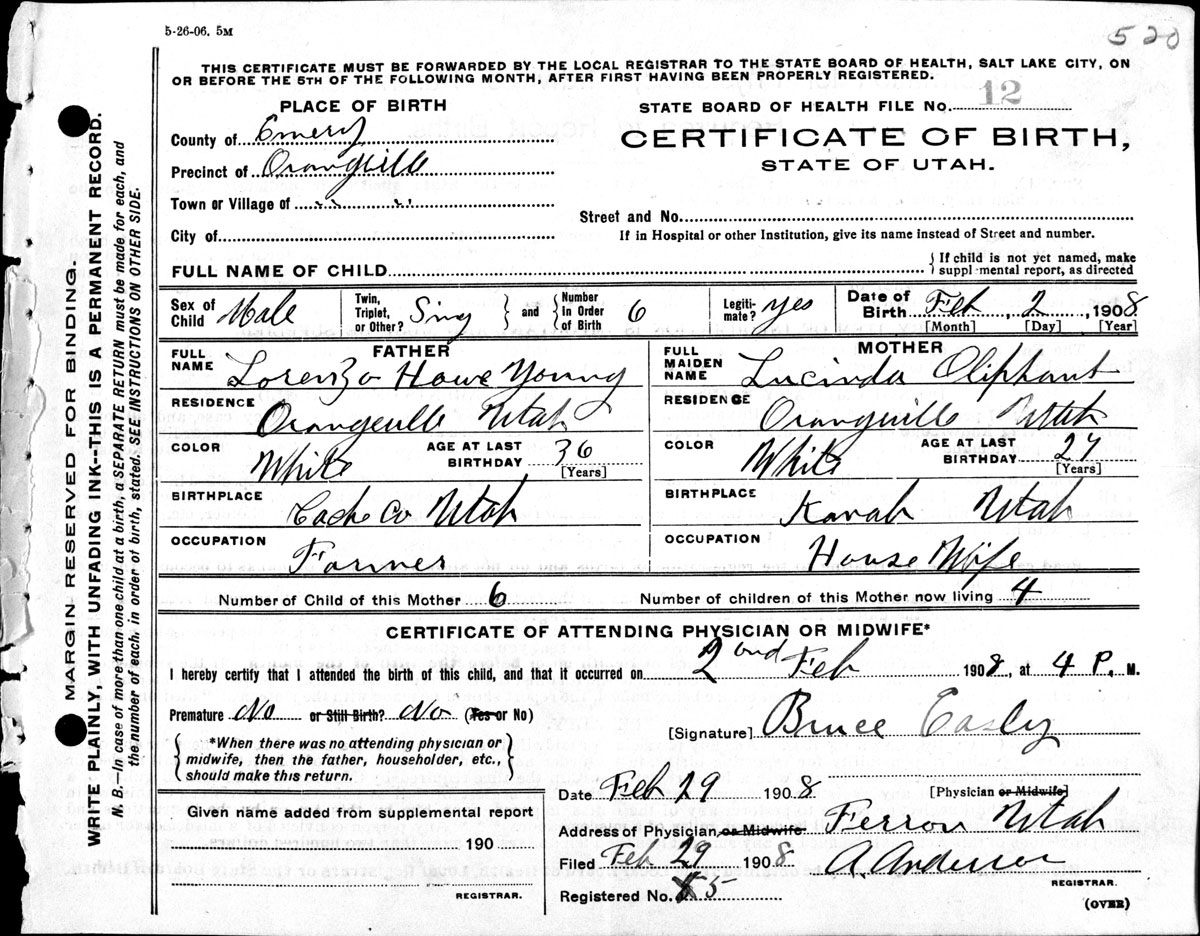 5-26-06. 5M
520
THIS CERTIFICATE MUST BE FORWARDED BY THE LOCAL REGISTRAR TO THE STATE BOARD OF HEALTH, SALT LAKE CITY, ON
OR BEFORE THE 5TH OF THE FOLLOWING MONTH, AFTER FIRST HAVING BEEN PROPERLY REGISTERED.
MARGIN RESERVED FOR BINDING.
WRITE PLAINLY, WITH UNFADING INK--THIS IS A PERMANENT RECORD.
N. B.--In case of more than one child at a birth, a SEPARATE RETURN must be made for each, and
the number of each, in order of birth, stated. SEE INSTRUCTIONS ON OTHER SIDE.
PLACE OF BIRTH
County of Emery
Precinct of Orangville
Town or Village of " "
City of
STATE BOARD OF HEALTH FILE No. 12
CERTIFICATE OF BIRTH,
STATE OF UTAH.
Street and No.
If in Hospital or other Institution, give its name instead of Street and number.
FULL NAME OF CHILD { If child is not yet named, make
supplemental report, as directed
Sex of Child Male Twin, Triplet, or Other? Sing } and { Number In Order of Birth 6 Legiti-mate? yes Date of Birth Feb, 2, 1908
[Month] [Day] [Year]
FATHER
FULL NAME Lorenzo Howe Young
RESIDENCE Orangeville Utah
COLOR White AGE AT LAST BIRTHDAY 36
[Years]
BIRTHPLACE Cache Co Utah
OCCUPATION Farmer
MOTHER
FULL MAIDEN NAME Lucinda Oliphant
RESIDENCE Orangville Utah
COLOR White AGE AT LAST BIRTHDAY 27
[Years]
BIRTHPLACE Kanab Utah
OCCUPATION House Wife
Number of Child of this Mother 6 Number of children of this Mother now living 4
CERTIFICATE OF ATTENDING PHYSICIAN OR MIDWIFE*
I hereby certify that I attended the birth of this child, and that it occurred on 2ond Feb 1908, at 4 P. M.
Premature No or Still Birth? No (Yes or No)
{ *When there was no attending physician or
midwife, then the father, householder, etc.,
should make this return. }
[Signature] Bruce Easly
Date Feb 29 1908 [Physician or Midwife]
Address of Physician or Midwife Ferron Utah
Filed Feb 29 1908 A. Anderson
REGISTRAR.
Registered No. 5
(OVER)
Given name added from supplemental report
190
REGISTRAR.